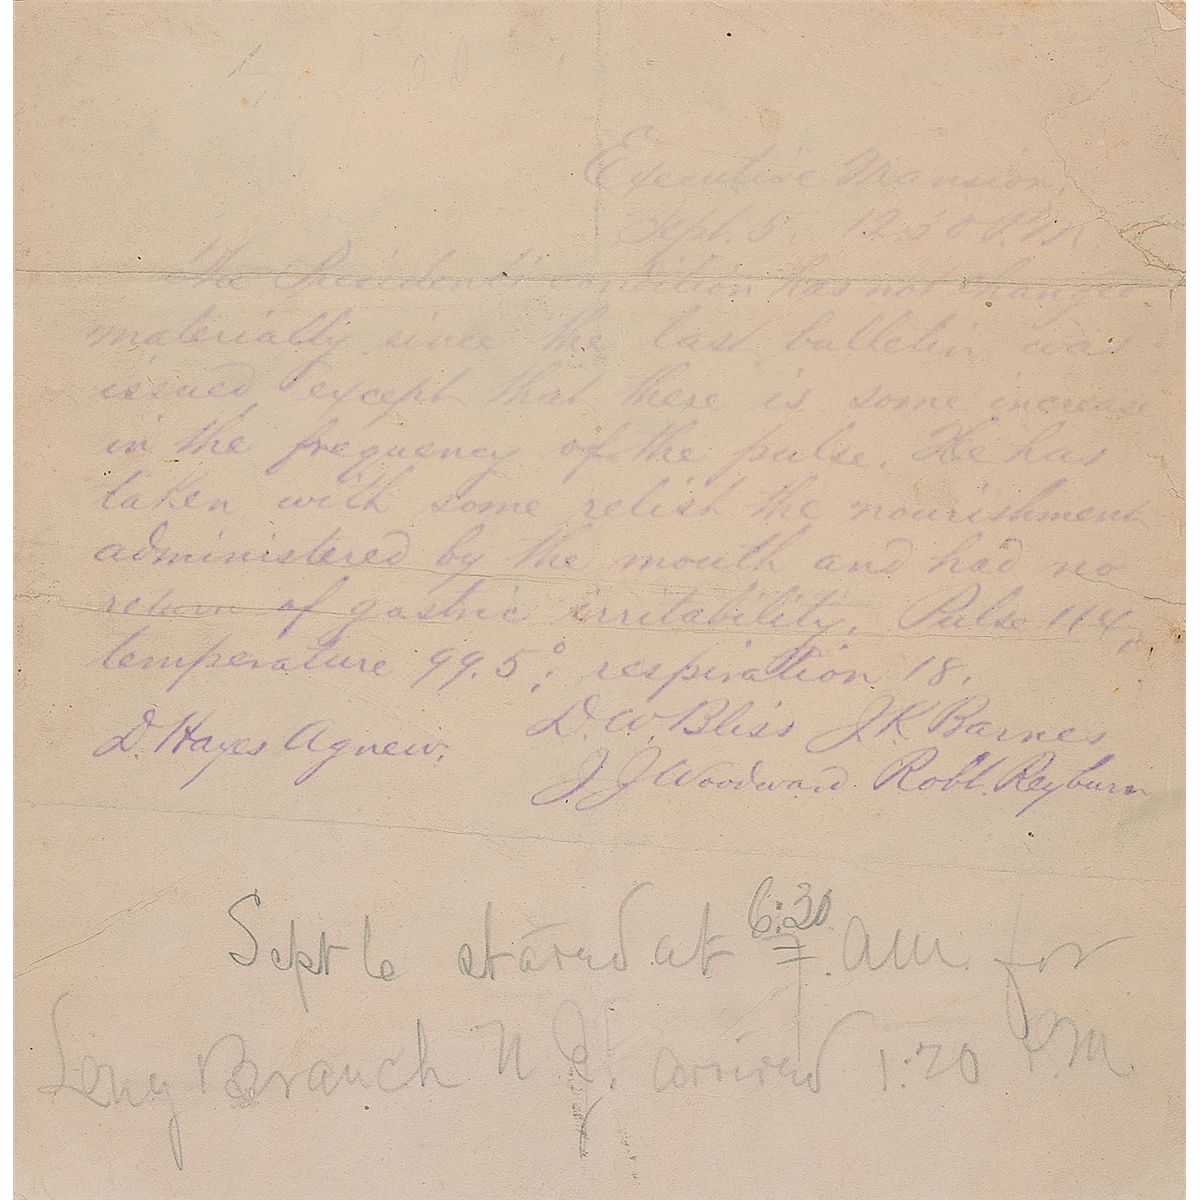 Executive Mansion,
Sept. 5. 12 30 P.M.
The President's condition has not changed
materially since the last bulletin was
issued except that there is some increase
in the frequency of the pulse. He has
taken with some relish the nourishment
administered by the mouth and had no
return of gastric irritability. Pulse 114;
temperature 99.5°; respiration 18.
D. W. Bliss J. K. Barnes
D. Hayes Agnew.
J J Woodward Robt. Reyburn
6:30
Sept 6 started at 7. am. for
Long Branch N J. arrived 1:20 P.M.